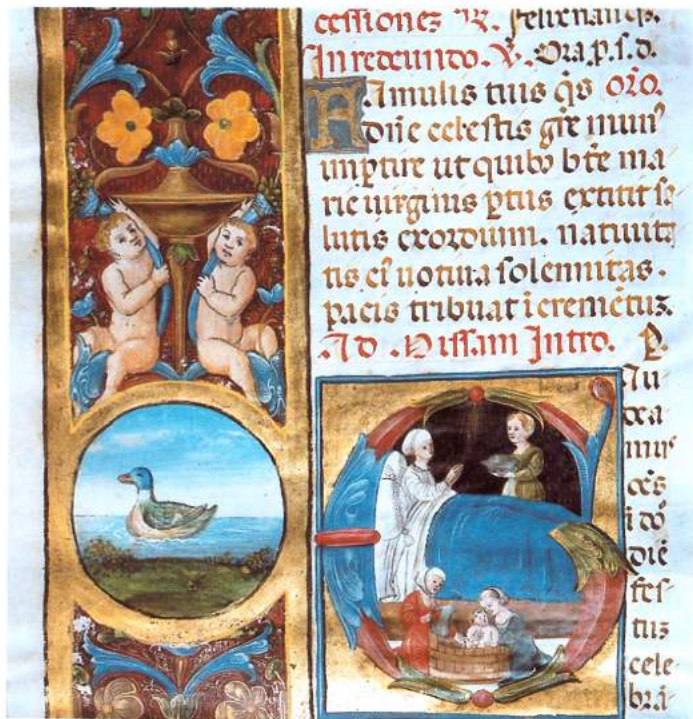 cessiones R. Felix nanqз.
In reeundo. V. Ora p. s. d.
Famulis tuis qs oro.
dnē celestis gre mun9
impertire ut quibꝫ bte ma
rie uirginis ptus extitit sa
lutis exordium. natiuita
tis ei uotiua solennitas.
pacis tribuat icremētuз.
Ad Missam Intro. P.
Au
dea
mus
oēs
i dō
diē
fes
tuз
cele
brā